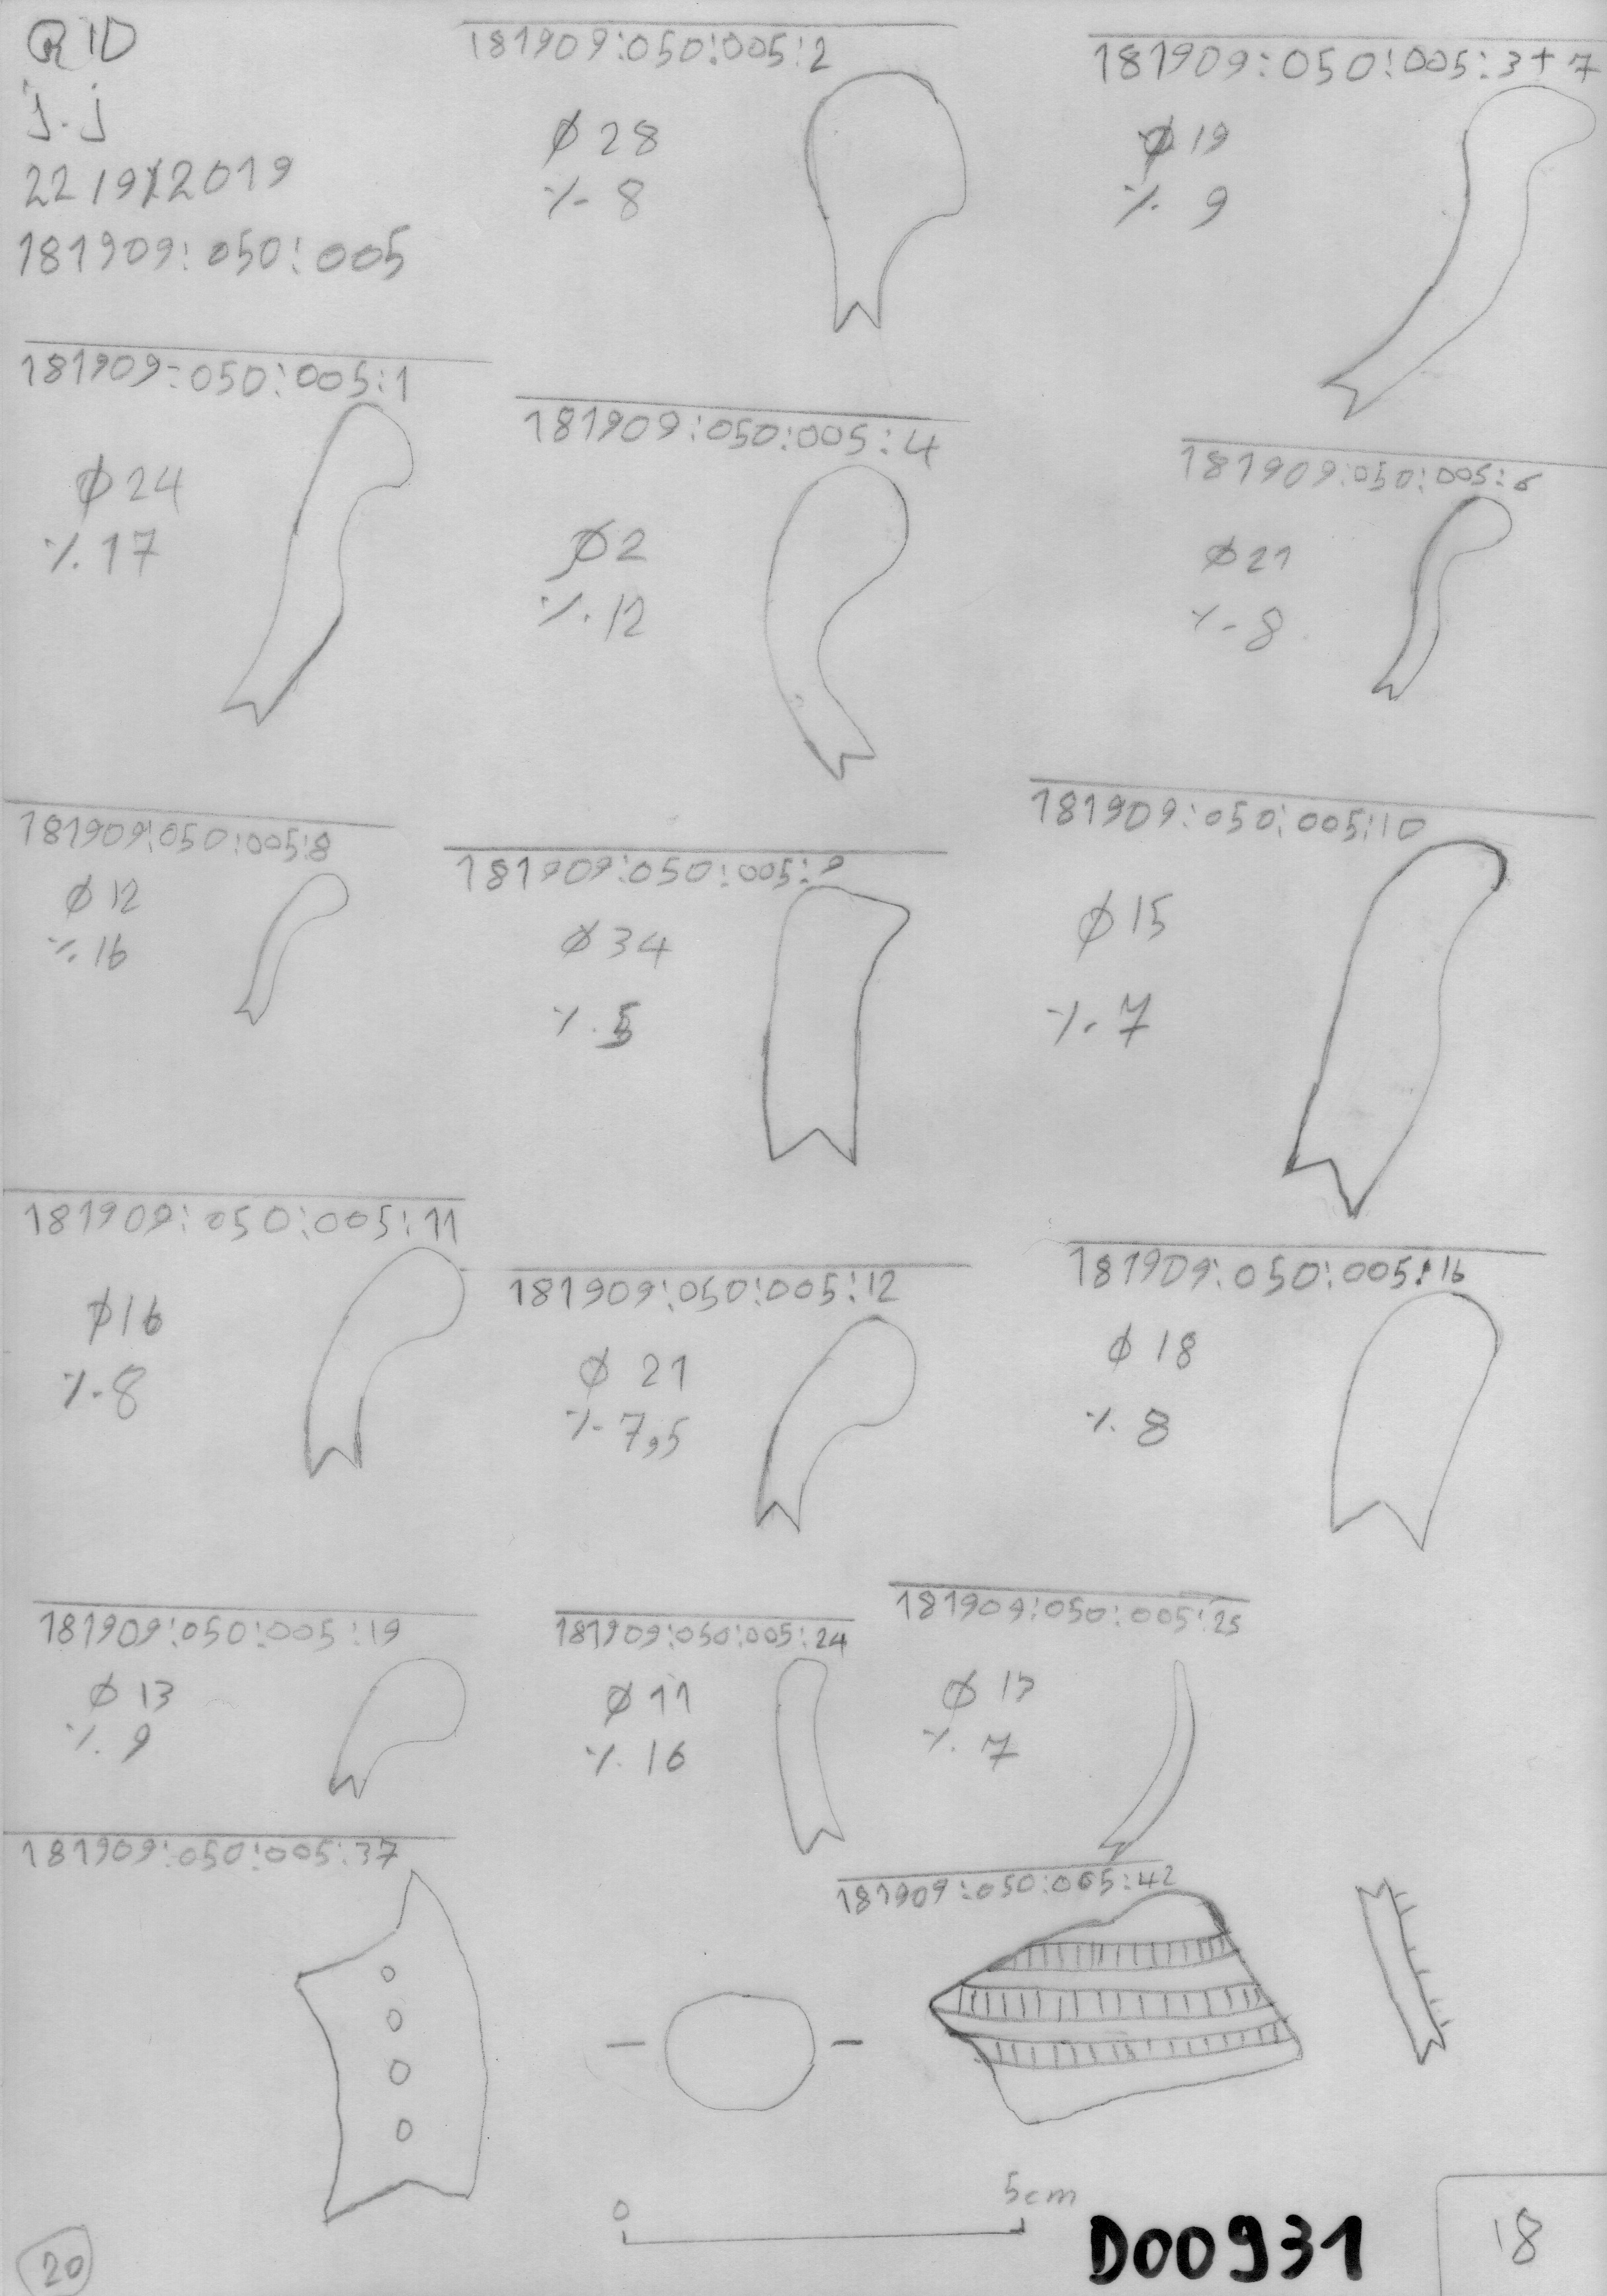 QID
J.J
22/9/2019
181909:050:005
181909:050:005:2
Ø 28
% 8
181909:050:005:3+7
Ø 19
% 9
181909:050:005:1
Ø 24
% 17
181909:050:005:4
Ø 2
% 12
181909:050:005:6
Ø 21
% 8
181909:050:005:8
Ø 12
% 16
181909:050:005:9
Ø 34
% 5
181909:050:005:10
Ø 15
% 7
181909:050:005:11
Ø 16
% 8
181909:050:005:12
Ø 21
% 7,5
181909:050:005:16
Ø 18
% 8
181909:050:005:19
Ø 13
% 9
181909:050:005:24
Ø 11
% 16
181909:050:005:25
Ø 13
% 7
181909:050:005:37
181909:050:005:42
0 5cm
D00931
18
20